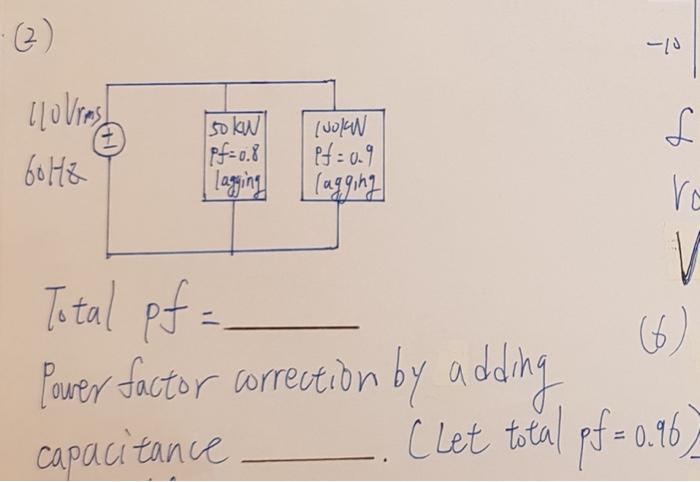 (2)
110Vrms
60Hz
50kW
Pf=0.8
lagging
100kW
Pf=0.9
lagging
Total pf =
Power factor correction by adding
capacitance . (Let total pf=0.96)
-10
(6)